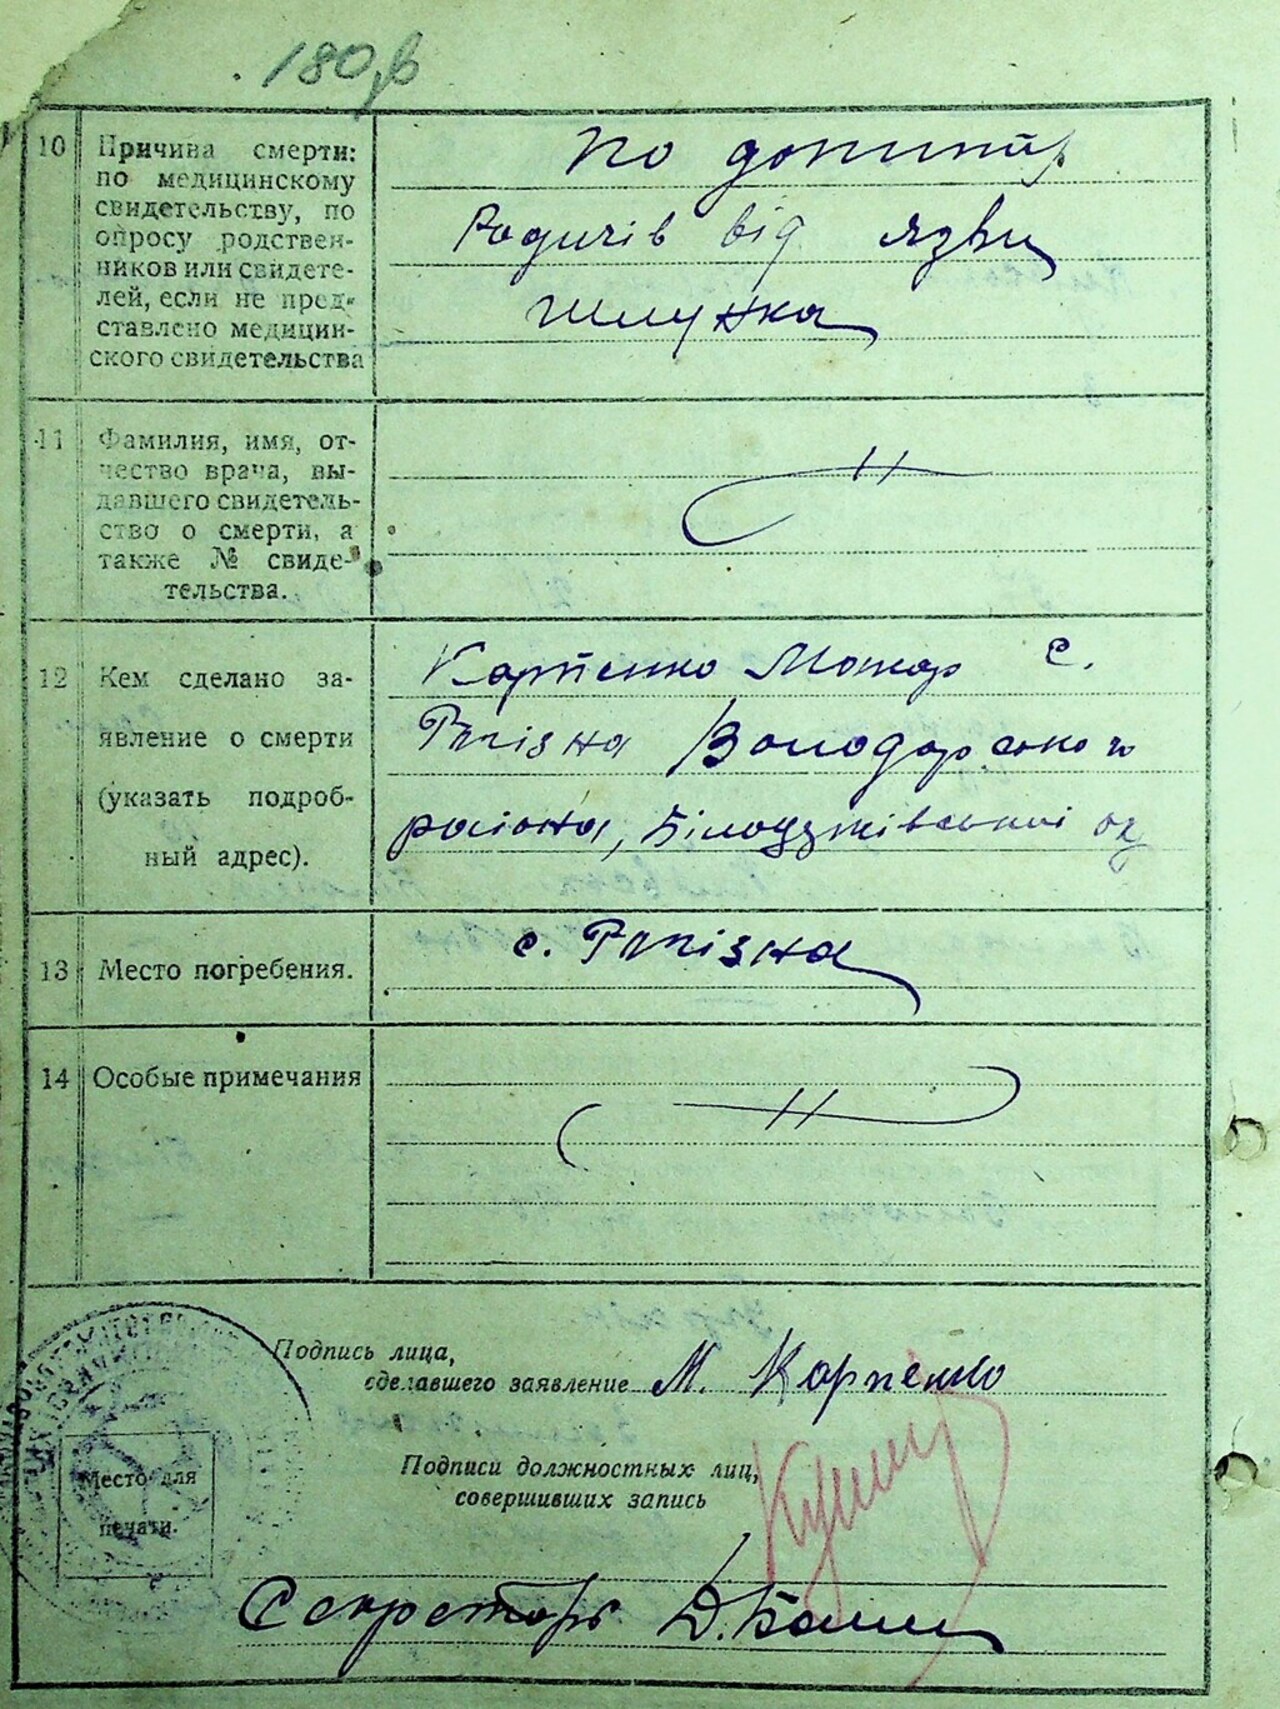 180,в
10 Причина смерти:
по медицинскому
свидетельству, по
опросу родствен-
ников или свидете-
лей, если не пред-
ставлено медицин-
ского свидетельства
по допиту
Родичів від язви
шлунка
11 Фамилия, имя, от-
чество врача, вы-
давшего свидетель-
ство о смерти, а
также № свиде-
тельства.
12 Кем сделано за-
явление о смерти
(указать подроб-
ный адрес).
Карпенко Макар с.
Володарського
району,
13 Место погребения.
с.
14 Особые примечания
Подпись лица,
сделавшего заявление М. Карпенко
Подписи должностных лиц,
совершивших запись
Место для
печати.
Секретарь